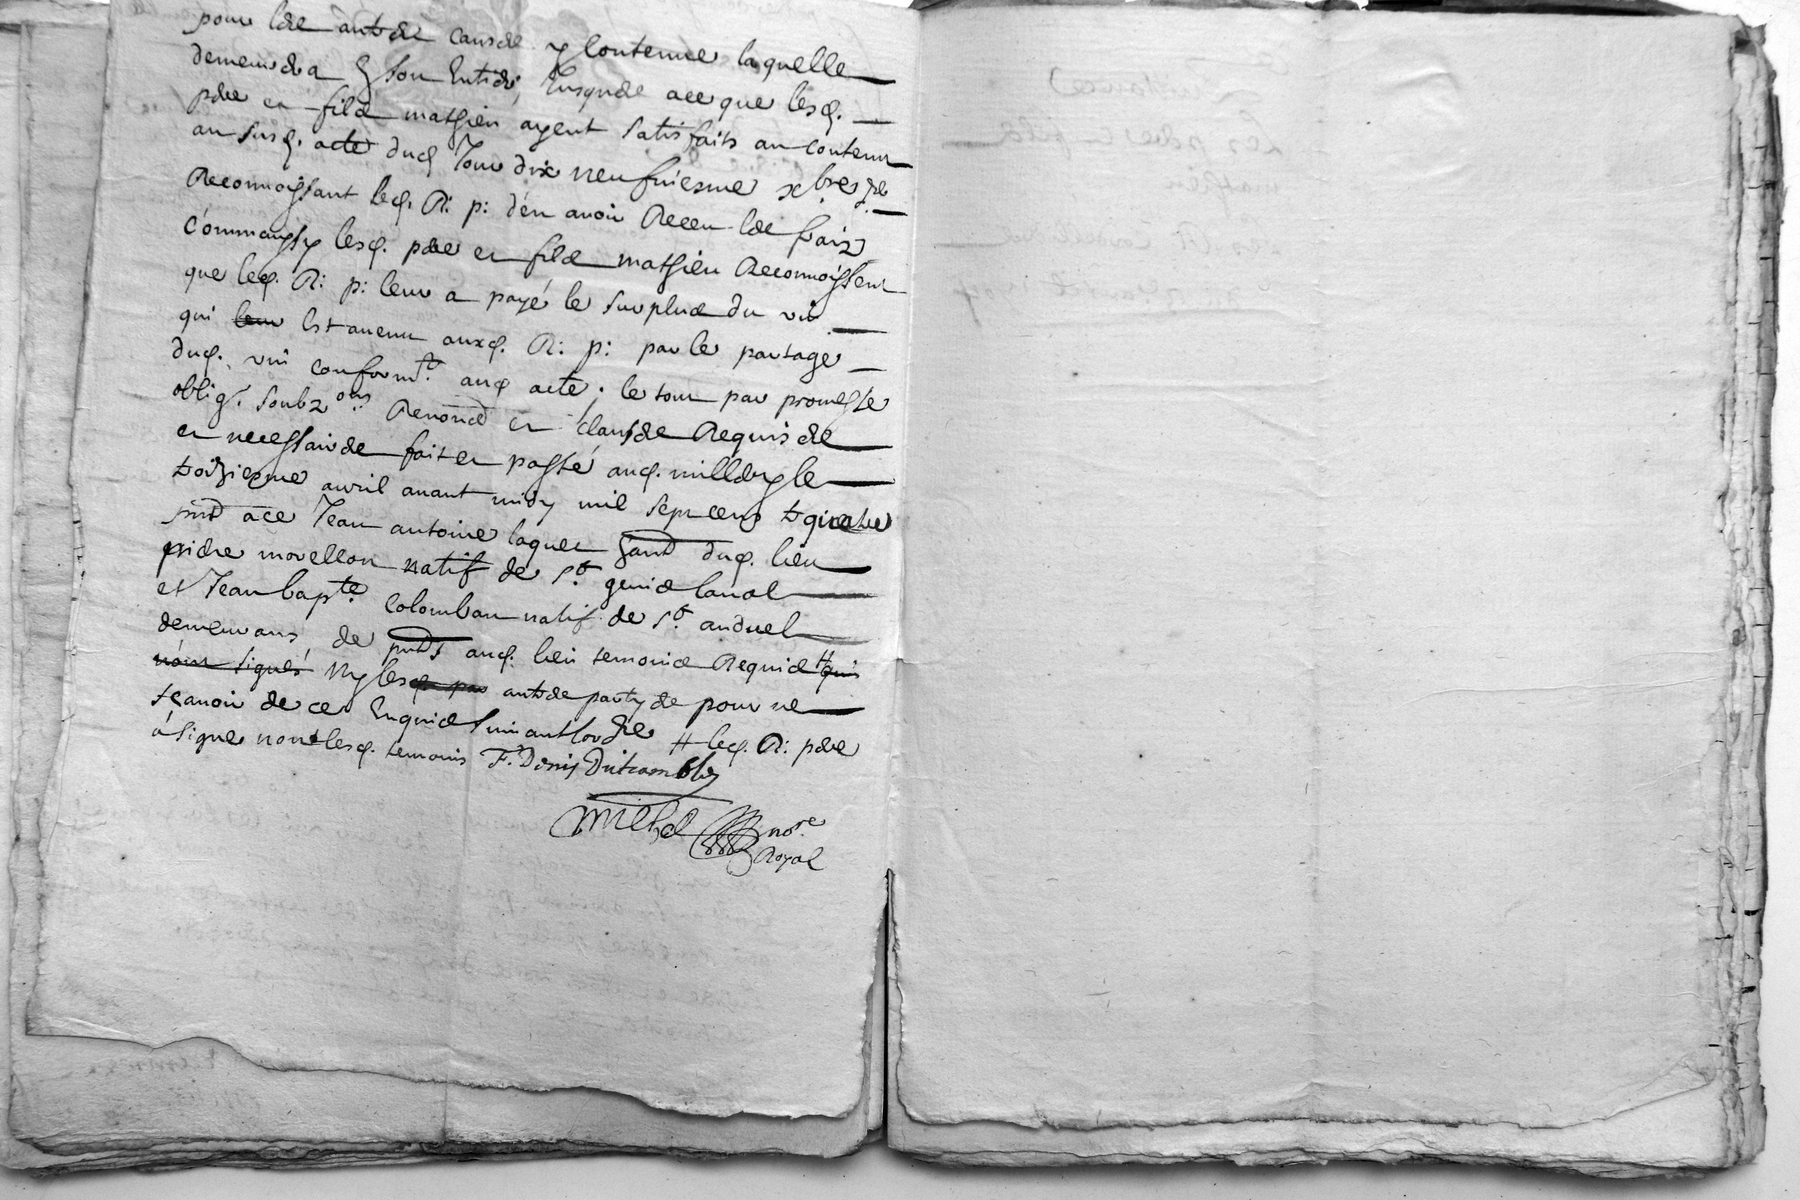 pour les autres causes y Contenue laquelle
demeurera Son Entiere, Jusques ace que lesd.
pere et fils mathieu ayent satisfaits au contenu
au susd. acte dud Jour dix neufviesme xbre
Reconnoissant led. R: p: d'en avoir Receu les fraiz
Comme aussy lesd. pere et fils mathieu Reconnoissent
que led. R: p: leur a payé le surplus du vin
qui leur Est avenu auxd. R: p: par le partage
dud. vin conformt. aud acte; le tout par promesse
oblig. soubzons Renond et clauses Requises
et necessaires fait et passé aud. millery le
troiziesme avril avant midy mil sept cens tquatre
pnts ace Jean antoine laguet dud. lieu
morellon natif de St. genis laval
et Jean bapte. Colomban natif de St. anduel
demeurans de pnts aud. lieu temoins Requis # qui
nont signés Ny lesd. par autres partyes pour ne
sçavoir de ce Enquis suivant lordre # led. R: pere
à signe non lesd. temoins F. Denis
Michel nore
Royal
Quittance
Les pere et fils
mathieu